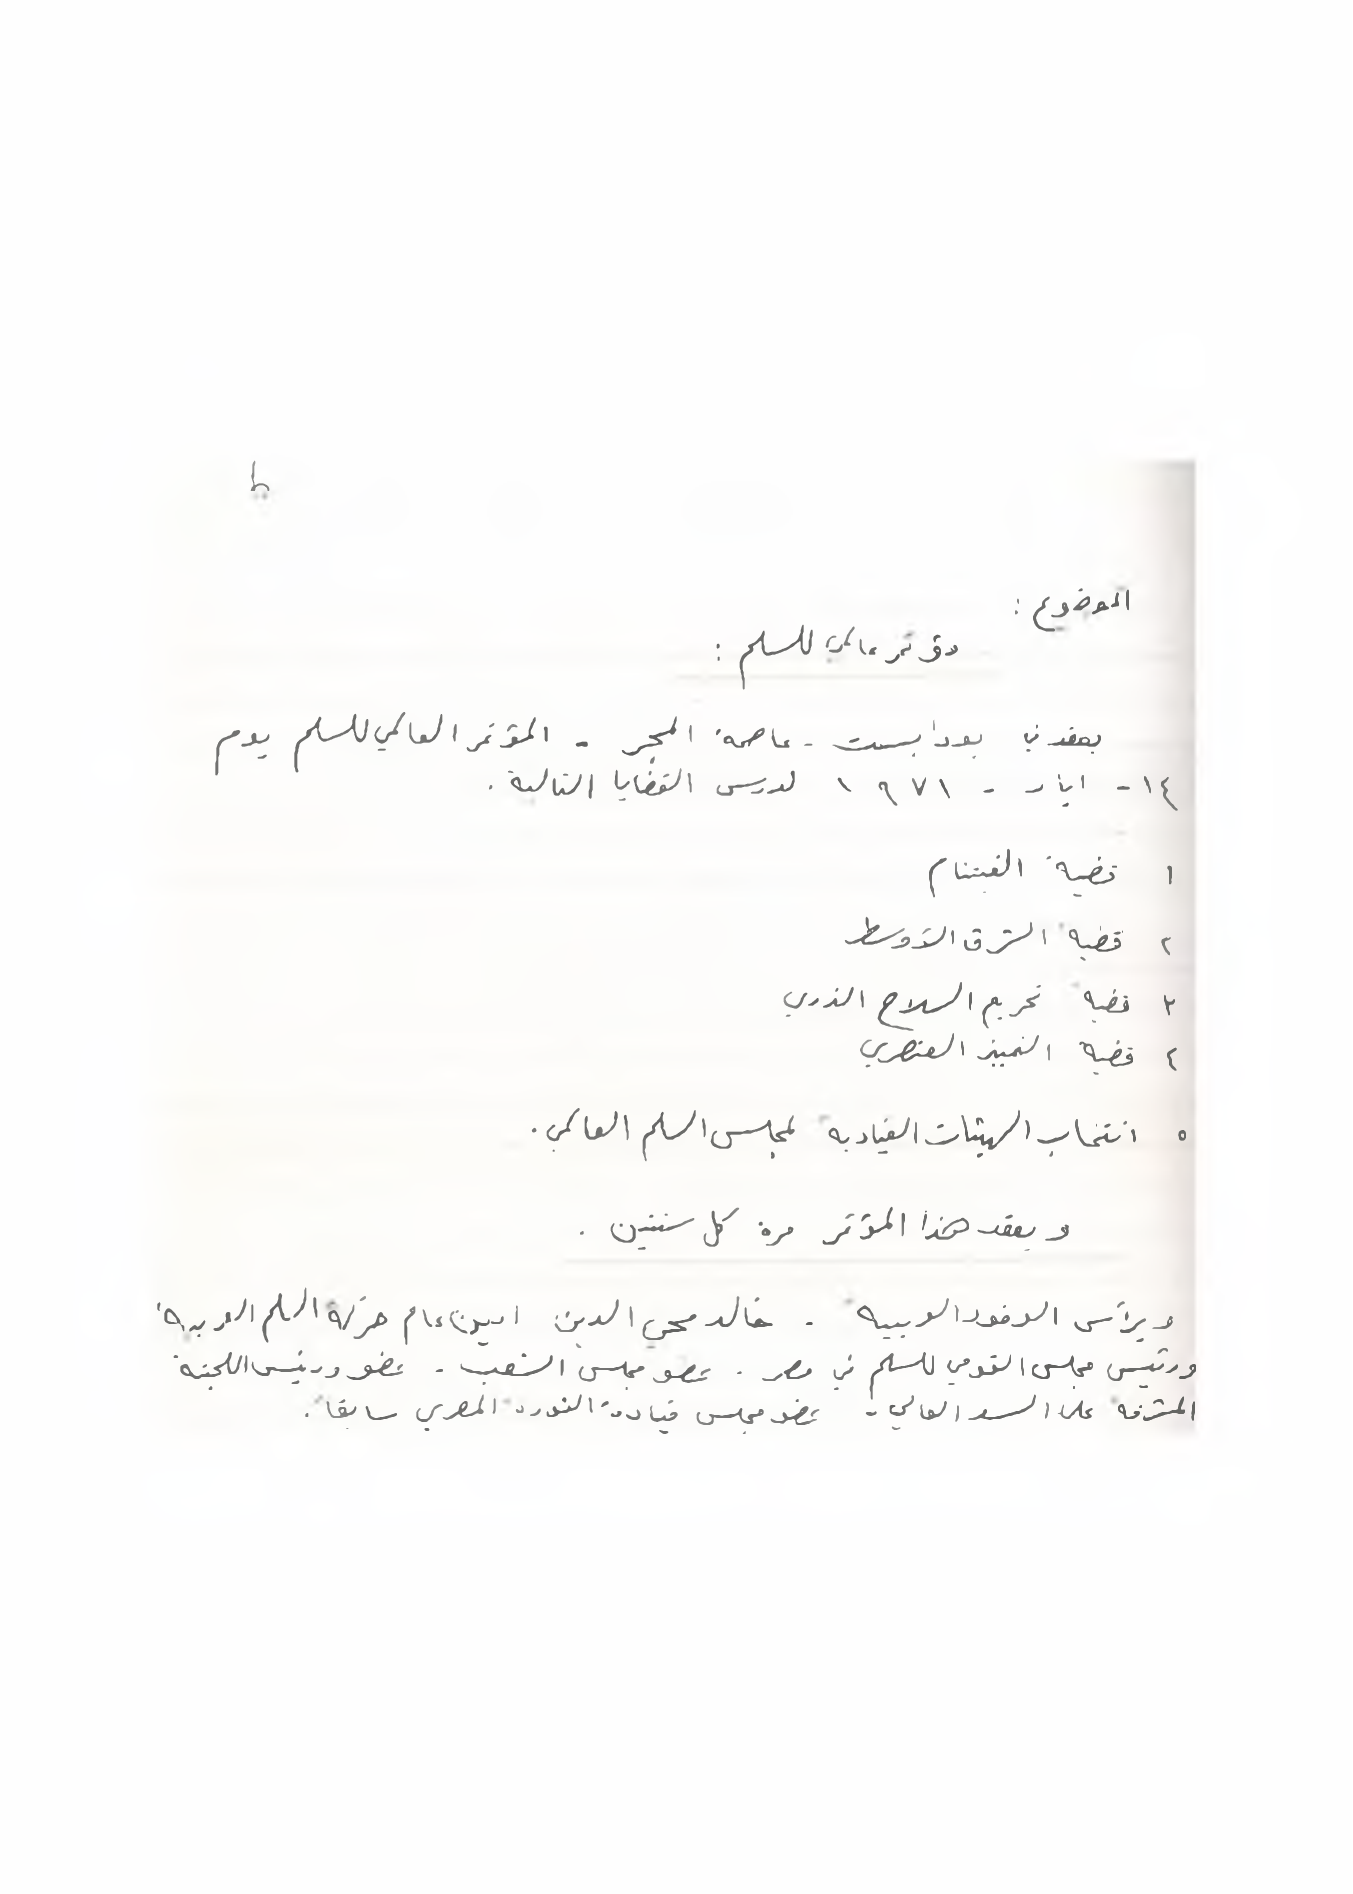 الموضوع :
مؤتمر عالمي للسلم :
يعقد في بودابست - عاصمة المجر - المؤتمر العالمي للسلم يوم
١٤ - ايار - ١٩٧١ لدرس القضايا التالية .
١ قضية الفيتنام
٢ قضية الشرق الأوسط
٣ قضية تحريم السلاح الذري
٤ قضية التمييز العنصري
٥ انتخاب الهيئات القيادية لمجلس السلم العالمي .
ويعقد هذا المؤتمر مرة كل سنتين .
ويرأس الوفود العربية - خالد محي الدين امين عام حركة السلم العربية
ورئيس مجلس القومي للسلم في مصر . عضو مجلس الشعب . عضو ورئيس اللجنة
المشرفة على السد العالي - عضو مجلس قيادة الثورة المصري سابقاً .